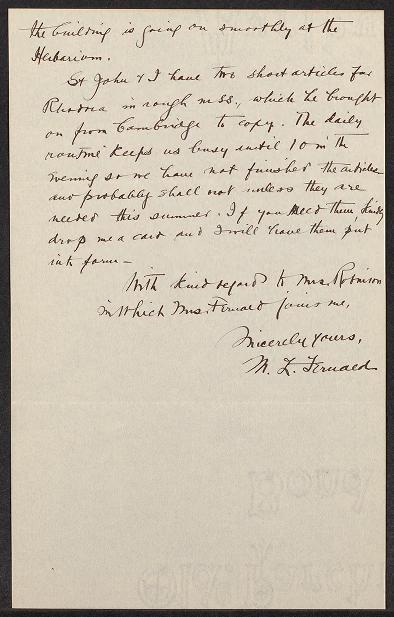 the building is going on smoothly at the
Herbarium.
St John & I have two short articles for
Rhodora in rough mss., which he brought
on from Cambridge to copy. The daily
routine keeps us busy until 10 in the
evening so we have not finished the articles
and probably shall not unless they are
needed this summer. If you need them kindly
drop me a card and I will have them put
into form –
With kind regards to Mrs. Robinson
in which Mrs. Fernald joins me,
Sincerely yours,
M. L. Fernald